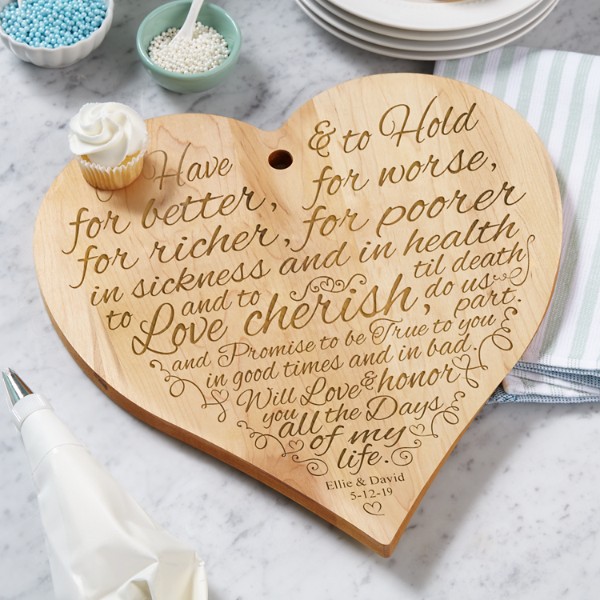 Have & to Hold
for better, for worse,
for richer, for poorer
in sickness and in health
to Love and to cherish, til death do us part.
and Promise to be True to you
in good times and in bad.
Will Love & honor
you all the Days
of my
life.
Ellie & David
5-12-19